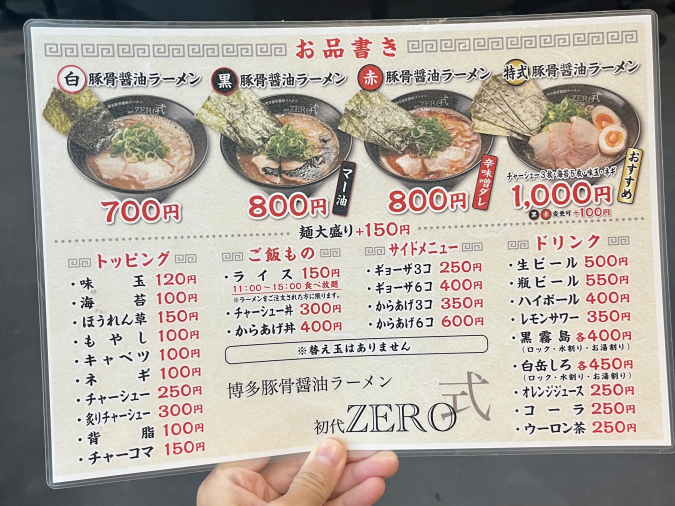 お品書き
白 豚骨醤油ラーメン
700円
黒 豚骨醤油ラーメン
マー油
800円
赤 豚骨醤油ラーメン
辛味噌ダレ
800円
特式 豚骨醤油ラーメン
チャーシュー3枚・海苔5枚・味玉・ネギ
おすすめ
1,000円
黒 赤 変更可 +100円
麺大盛り+150円
トッピング
・味玉 120円
・海苔 100円
・ほうれん草 150円
・もやし 100円
・キャベツ 100円
・ネギ 100円
・チャーシュー 250円
・炙りチャーシュー 300円
・背脂 100円
・チャーコマ 150円
ご飯もの
・ライス 150円
11:00~15:00 食べ放題
※ラーメンをご注文された方に限ります。
・チャーシュー丼 300円
・からあげ丼 400円
サイドメニュー
・ギョーザ3コ 250円
・ギョーザ6コ 400円
・からあげ3コ 350円
・からあげ6コ 600円
※替え玉はありません
博多豚骨醤油ラーメン
初代ZERO式
ドリンク
・生ビール 500円
・瓶ビール 550円
・ハイボール 400円
・レモンサワー 350円
・黒霧島 各400円
(ロック・水割り・お湯割り)
・白岳しろ 各450円
(ロック・水割り・お湯割り)
・オレンジジュース 250円
・コーラ 250円
・ウーロン茶 250円